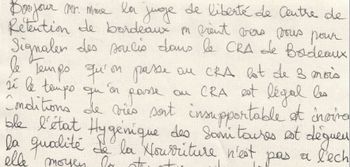 Bonjour Mr. Mme la juge de liberté de Centre de
Rétention de bordeaux on vient vers vous pour
Signaler des soucis dans le CRA de Bordeaux
le temps qu'on passe au CRA est de 3 mois
si le temps qu'on passe au CRA est légal les
conditions de vies sont insupportable et
ble l'état Hygénique des Sanitaires est dégueu
la qualité de la Nourriture n'est pas a l'ech
elle moyen la